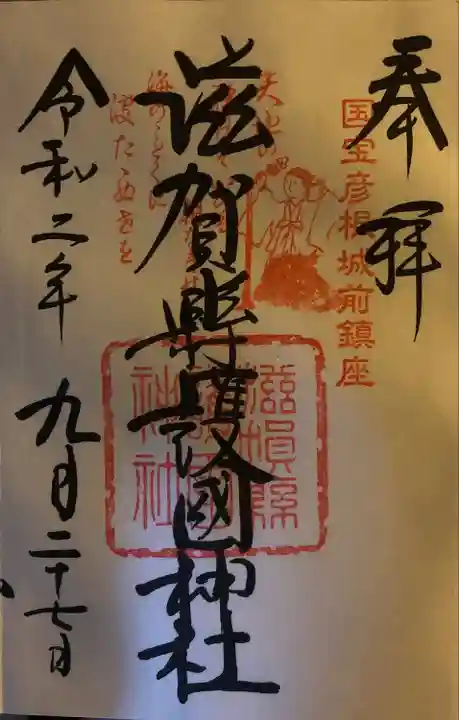 奉拝
国宝彦根城前鎮座
滋賀縣護國神社
滋賀縣
護國
神社
令和二年九月二十七日